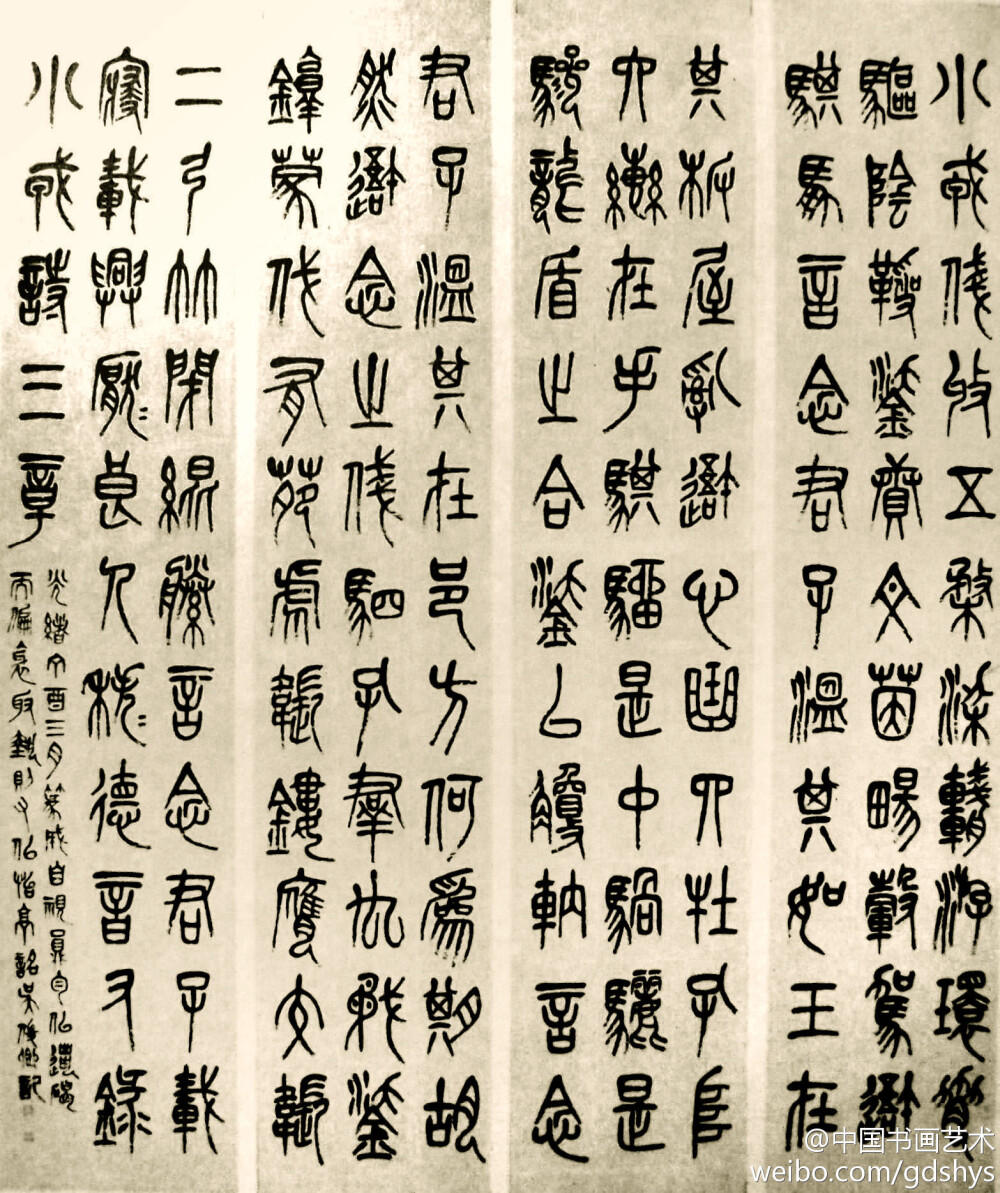 小戎俴收五楘梁輈游環脅
驅陰靷鋈續文茵暢轂駕我
騏馵言念君子溫其如玉在
其板屋亂我心曲四牡孔阜
六轡在手騏駵是中騧驪是
驂龍盾之合鋈以觼軜言念
君子溫其在邑方何為期胡
然我念之俴駟孔羣厹矛鋈
錞蒙伐有苑虎韔鏤膺交韔
二弓竹閉緄縢言念君子載
寢載興厭〻良人秩〻德音又錄
小戎詩三章
光緒丁酉三月篆成自視
吳俊卿記
@中国书画艺术
weibo.com/gdshys